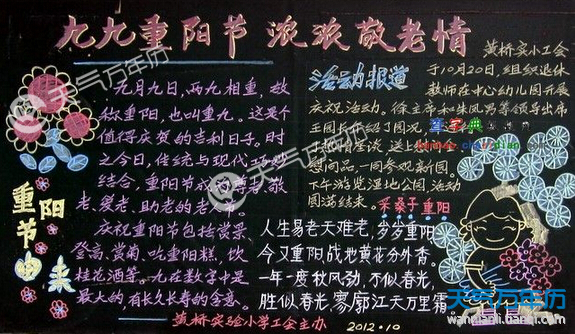 九九重阳节 浓浓敬老情
九月九日,两九相重,故
称重阳,也叫重九。这是个
值得庆贺的吉利日子。时
至今日,传统与现代巧妙
结合,重阳节成
老、爱老、助老的老人节。
庆祝重阳节包括赏景、
登高、赏菊、吃重阳糕、饮
桂花酒等。九在数字中是
最大的有长久长寿的含意。
重阳
节由
来
黄桥实验小学工会主办
活动报道
黄桥实小工会
于10月20日,组织退休
教师在中心幼儿园开展
庆祝活动。徐主席和朱凤
领导出席
王园长介绍了园况,
慰问品,一同参观新园。
下午游览湿地公园,活动
圆满结束。
采桑子重阳
人生易老天难老,岁岁重阳
今又重阳,战地黄花分外香,
一年一度秋风劲,不似春光,
胜似春光,寥廓江天万里霜
2012.10
天气万年历
天气万年历
天气万年历
天气万年历
wannianli.tianqi.com